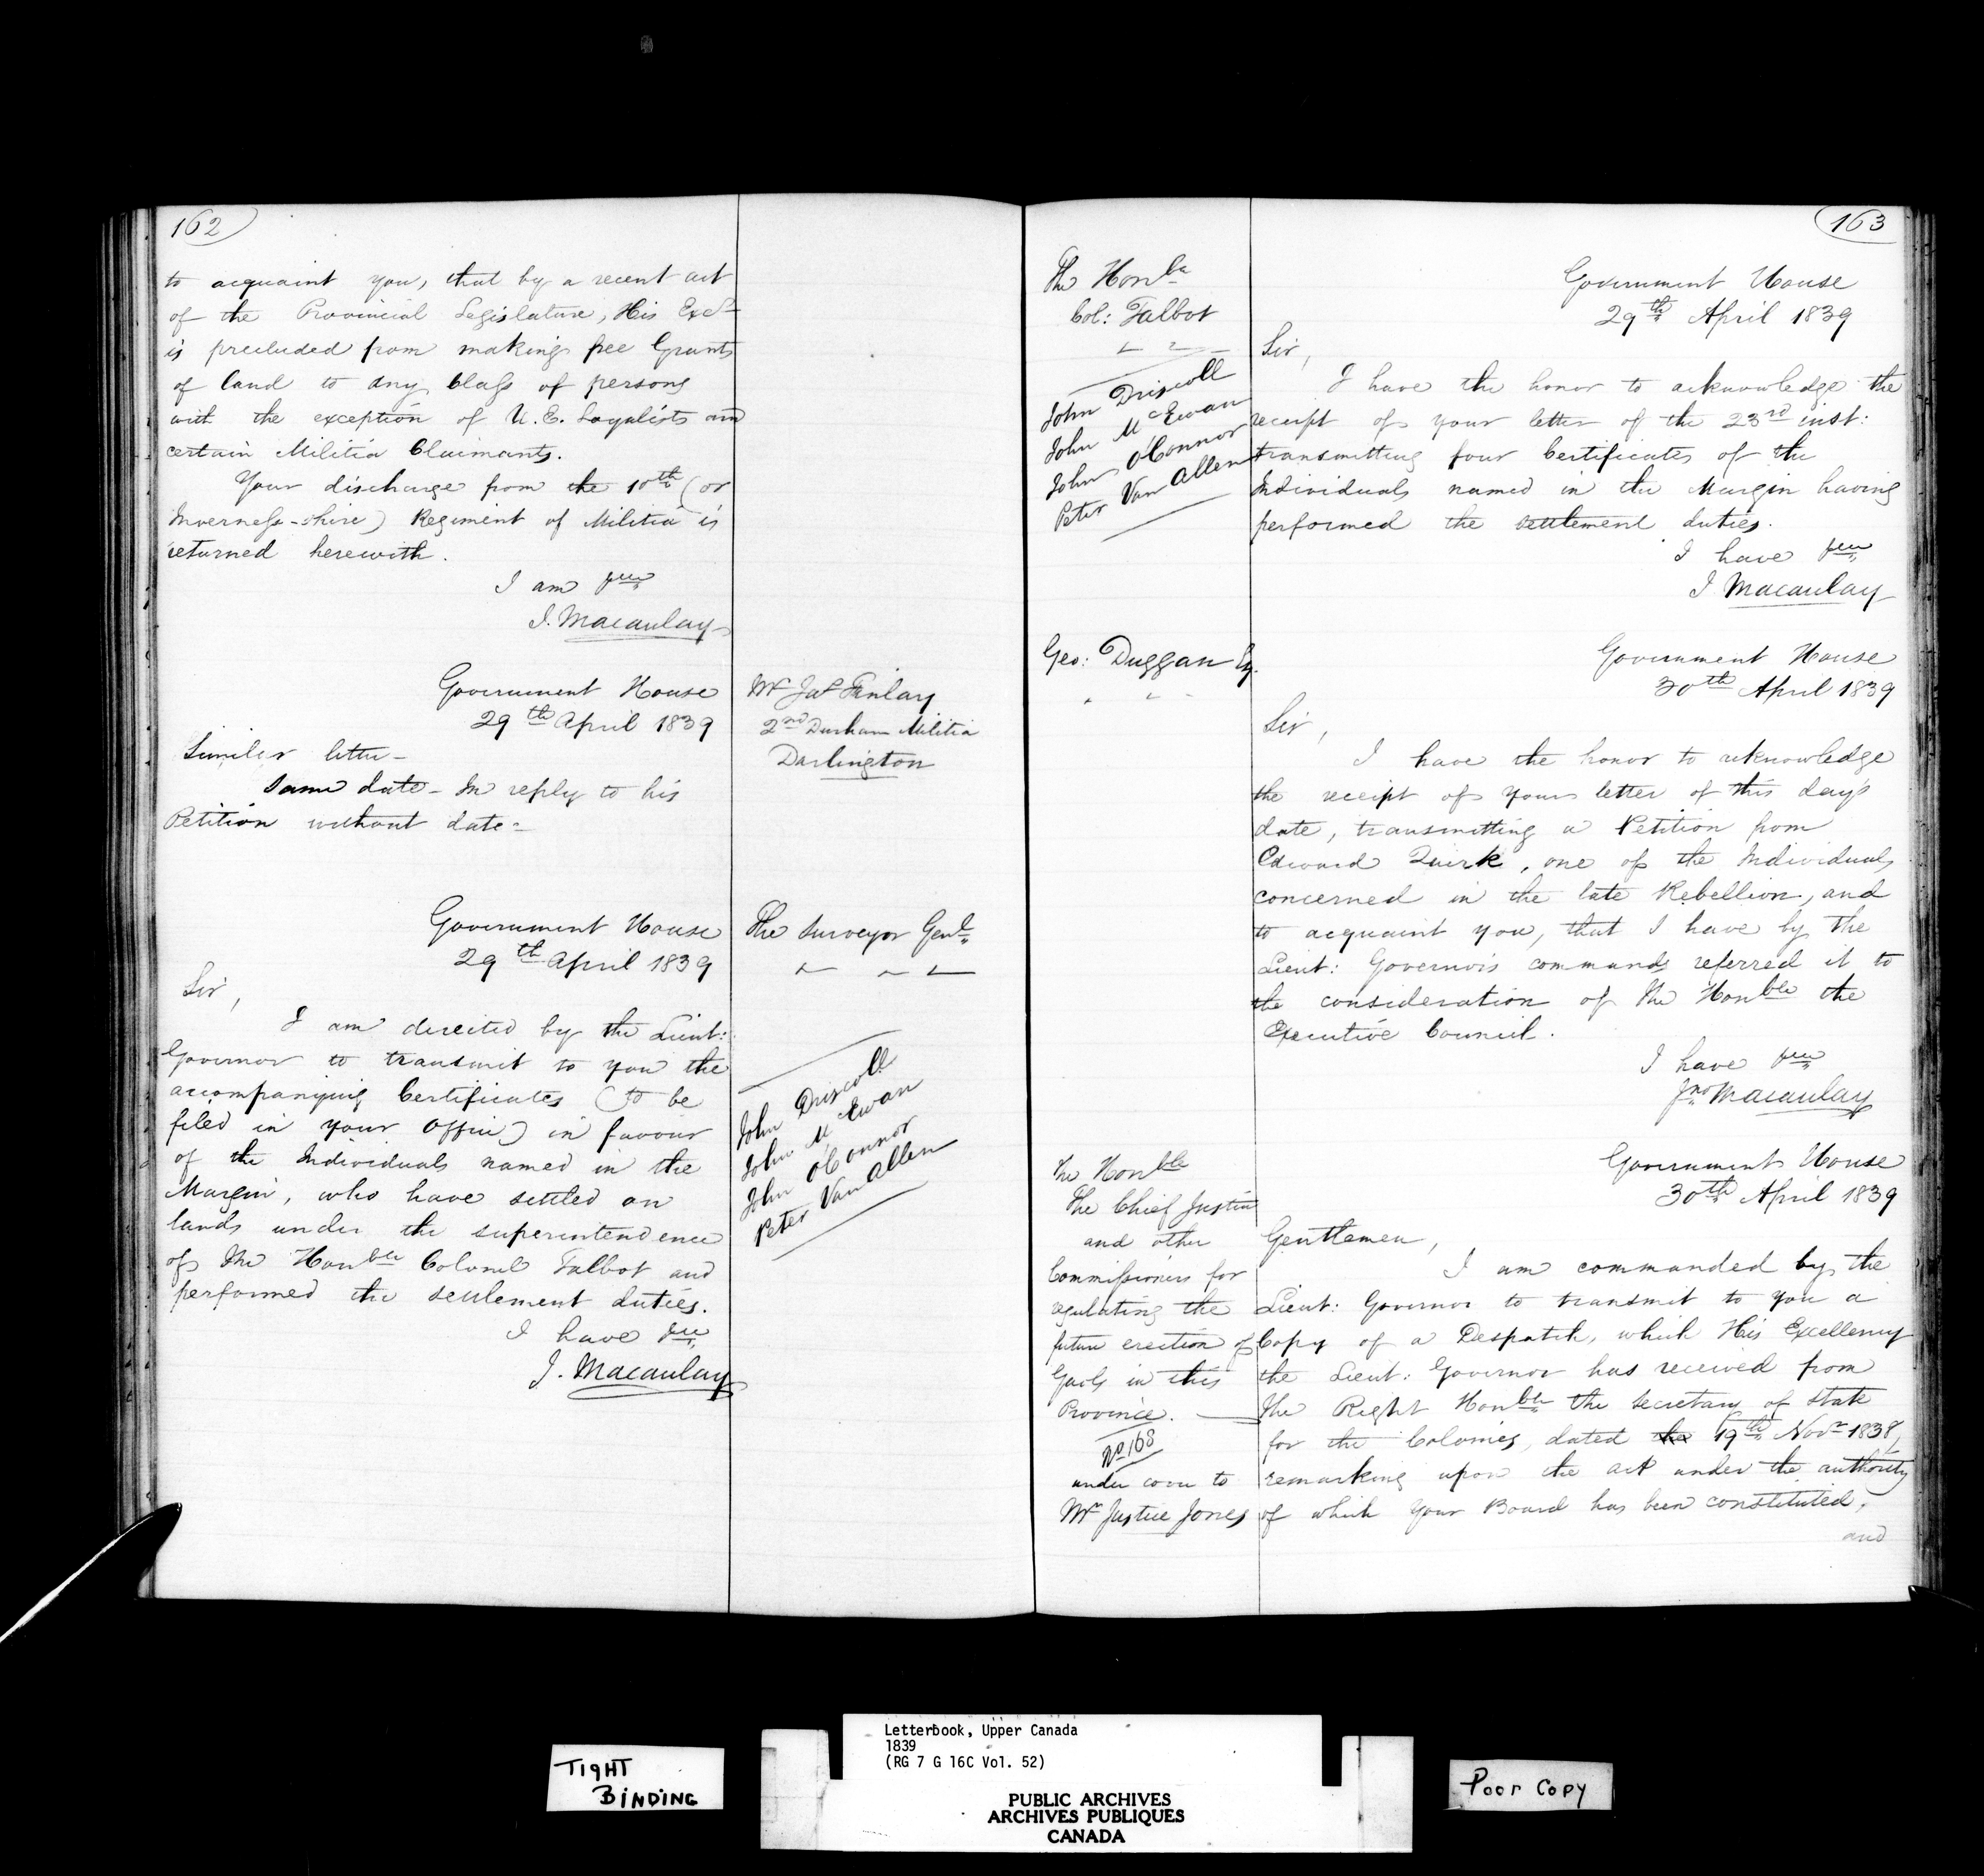 162
to acquaint you, that by a recent act
of the Provincial Legislature, His Excy
is precluded from making free Grants
of land to any Class of persons
with the exception of U.E. Loyalists and
certain Militia Claimants.
Your discharge from the 10th (or
Inverness-shire) Regiment of Militia is
returned herewith.
I am
J. Macaulay
Government House
29th April 1839
Mr Jas Finlay
2nd Durham Militia
Darlington
Similar letter-
same date - In reply to his
Petition without date-
Government House
29th April 1839
The Surveyor Genl
Sir,
I am directed by the Lieut:
Governor to transmit to you the
accompanying Certificates (to be
filed in your Office) in favour
of the Individuals named in the
Margin, who have settled on
lands under the superintendence
of The Honble Colonel Talbot and
performed the settlement duties.
I have
J. Macaulay
John Driscoll
John McEwan
John O'Connor
Peter Van Allen
163
The Honble
Col: Talbot
John Driscoll
John McEwan
John O'Connor
Peter Van Allen
Government House
29th April 1839
Sir,
I have the honor to acknowledge the
receipt of your letter of the 23rd inst:
transmitting four Certificates of the
Individuals named in the Margin having
performed the settlement duties.
I have
J. Macaulay
Geo: Duggan Esq.
Government House
30th April 1839
Sir,
I have the honor to acknowledge
the receipt of your letter of this day's
date, transmitting a Petition from
Edward Quirk, one of the Individuals
concerned in the late Rebellion, and
to acquaint you, that I have by the
Lieut: Governor's commands referred it to
the consideration of The Honble the
Executive Council.
I have
Jno Macaulay
The Honble
The Chief Justice
and other
Commissioners for
regulating the
future erection of
Gaols in this
Province.
No 168
under cover to
Mr Justice Jones
Government House
30th April 1839
Gentlemen,
I am commanded by the
Lieut: Governor to transmit to you a
Copy of a Despatch, which His Excellency
the Lieut: Governor has received from
The Right Honble the Secretary of State
for the Colonies, dated the 19th Novr 1838,
remarking upon the act under the authority
of which your Board has been constituted,
and
TIGHT
BINDING
Letterbook, Upper Canada
1839
(RG 7 G 16C Vol. 52)
PUBLIC ARCHIVES
ARCHIVES PUBLIQUES
CANADA
Poor Copy